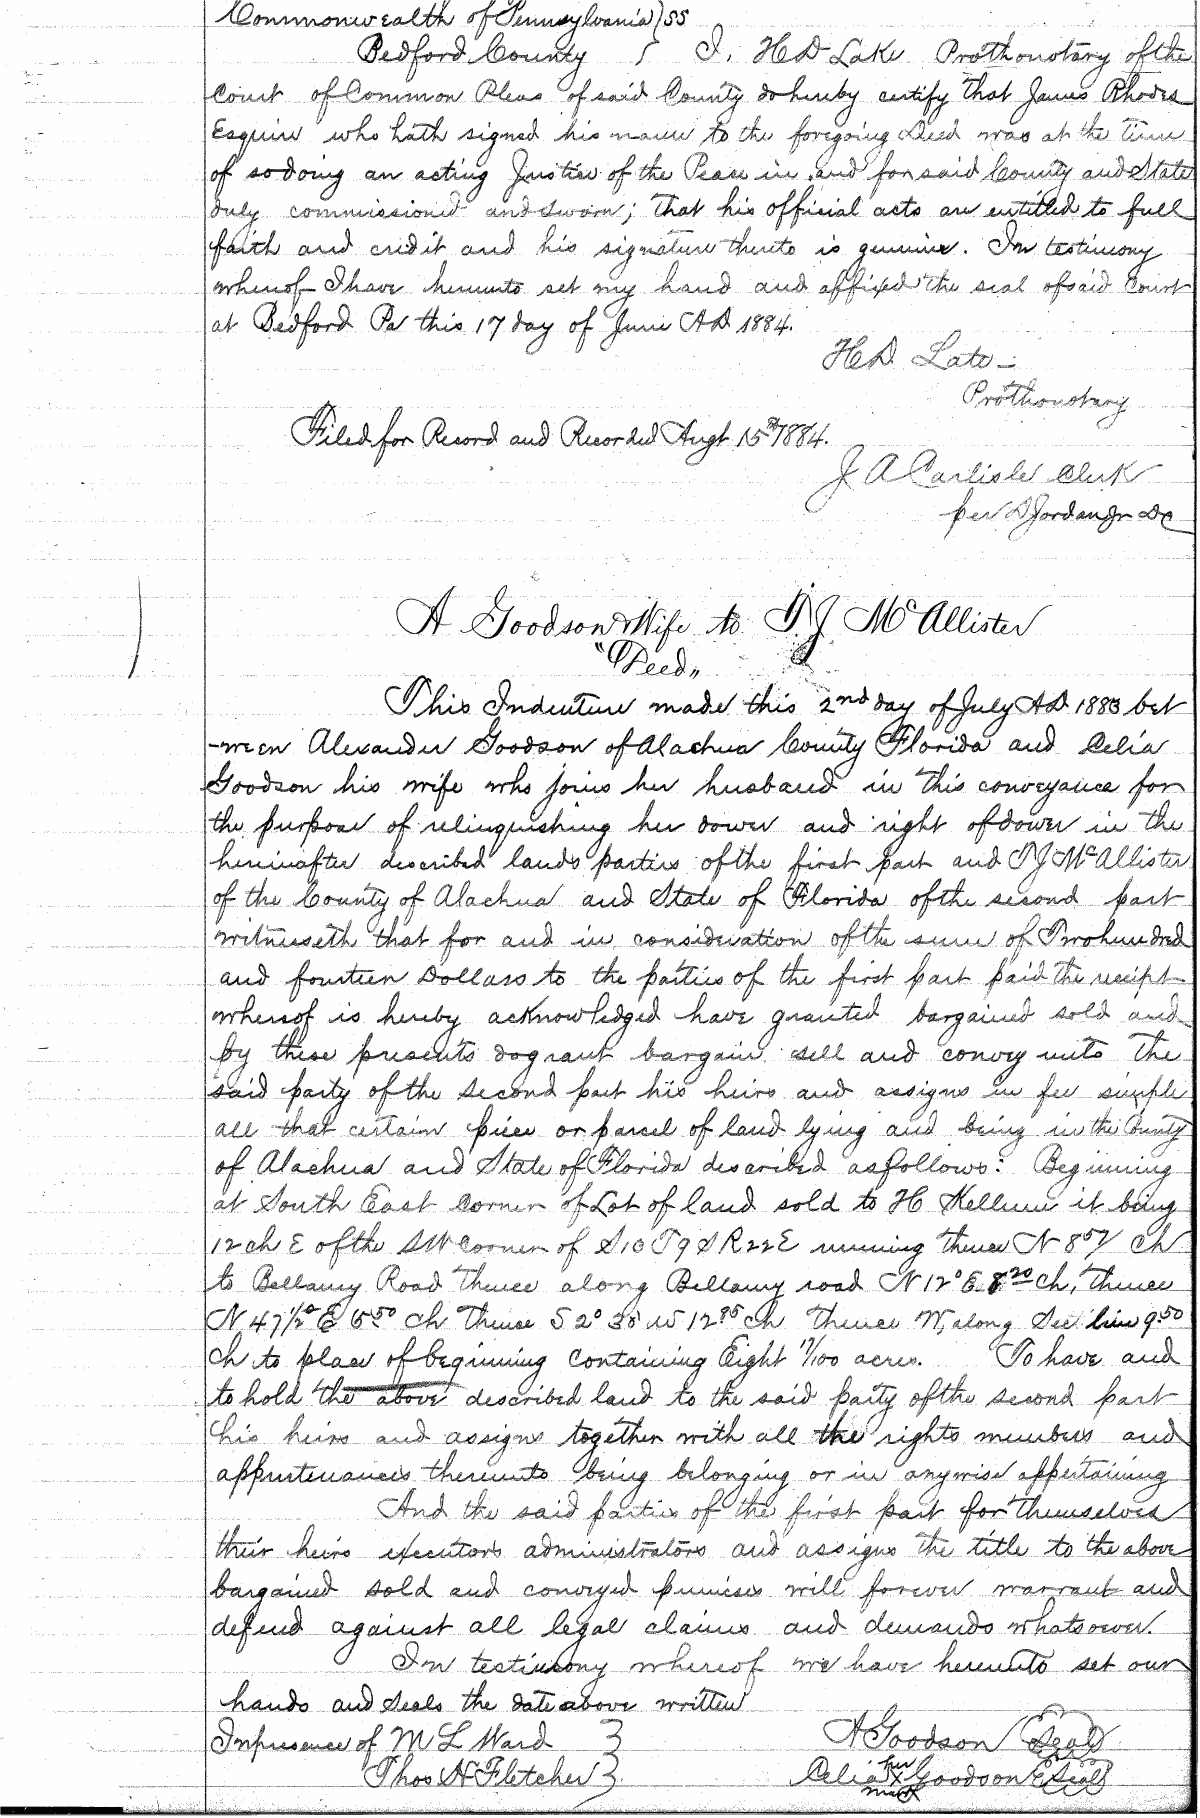 Commonwealth of Pennsylvania } SS
Bedford County } I, H D Lake Prothonotary of the
Court of Common Pleas of said County do hereby certify that James Rhodes
Esquire who hath signed his name to the foregoing Deed was at the time
of so doing an acting Justice of the Peace in and for said County and State
duly commissioned and sworn; that his official acts are entitled to full
faith and credit and his signature thereto is genuine. In testimony
whereof I have hereunto set my hand and affixed the seal of said Court
at Bedford Pa this 17 day of June AD 1884.
H D Late
Prothonotary
Filed for Record and Recorded Augt 15th 1884.
J A Carlisle Clerk
per D Jordan Jr DC
A Goodson & Wife to T. J McAllister
"Deed"
This Indenture made this 2nd day of July AD 1883 bet
-ween Alexander Goodson of Alachua County Florida and Celia
Goodson his wife who joins her husband in this conveyance for
the purpose of relinquishing her dower and right of dower in the
hereinafter described lands parties of the first part and T J McAllister
of the County of Alachua and State of Florida of the second part
witnesseth that for and in consideration of the sum of Two hundred
and fourteen Dollars to the parties of the first part paid the receipt
whereof is hereby acknowledged have granted bargained sold and
by these presents do grant bargain sell and convey unto the
said party of the second part his heirs and assigns in fee simple
all that certain piece or parcel of land lying and being in the County
of Alachua and State of Florida described as follows: Beginning
at South East Corner of Lot of land sold to H Kellum it being
12 ch E of the SW Corner of S 10 T 9 S R 22 E running thence N 8 57 ch
to Bellamy Road Thence along Bellamy road N 12° E 8 20 ch, thence
N 47 1/2° E 6 50 ch Thence S 2° 30 W 12 85 ch Thence W, along Sec. line 9.50
ch to place of beginning containing Eight 17/100 acres. To have and
to hold the above described land to the said party of the second part
his heirs and assigns together with all the rights members and
appurtenances thereunto being belonging or in anywise appertaining
And the said parties of the first part for themselves
their heirs executors administrators and assigns the title to the above
bargained sold and conveyed premises will forever warrant and
defend against all legal claims and demands whatsoever.
In testimony whereof we have hereunto set our
hands and seals the date above written
In presence of M L Ward } A Goodson (Seal)
Thos H Fletcher } Celia her X mark Goodson (Seal)